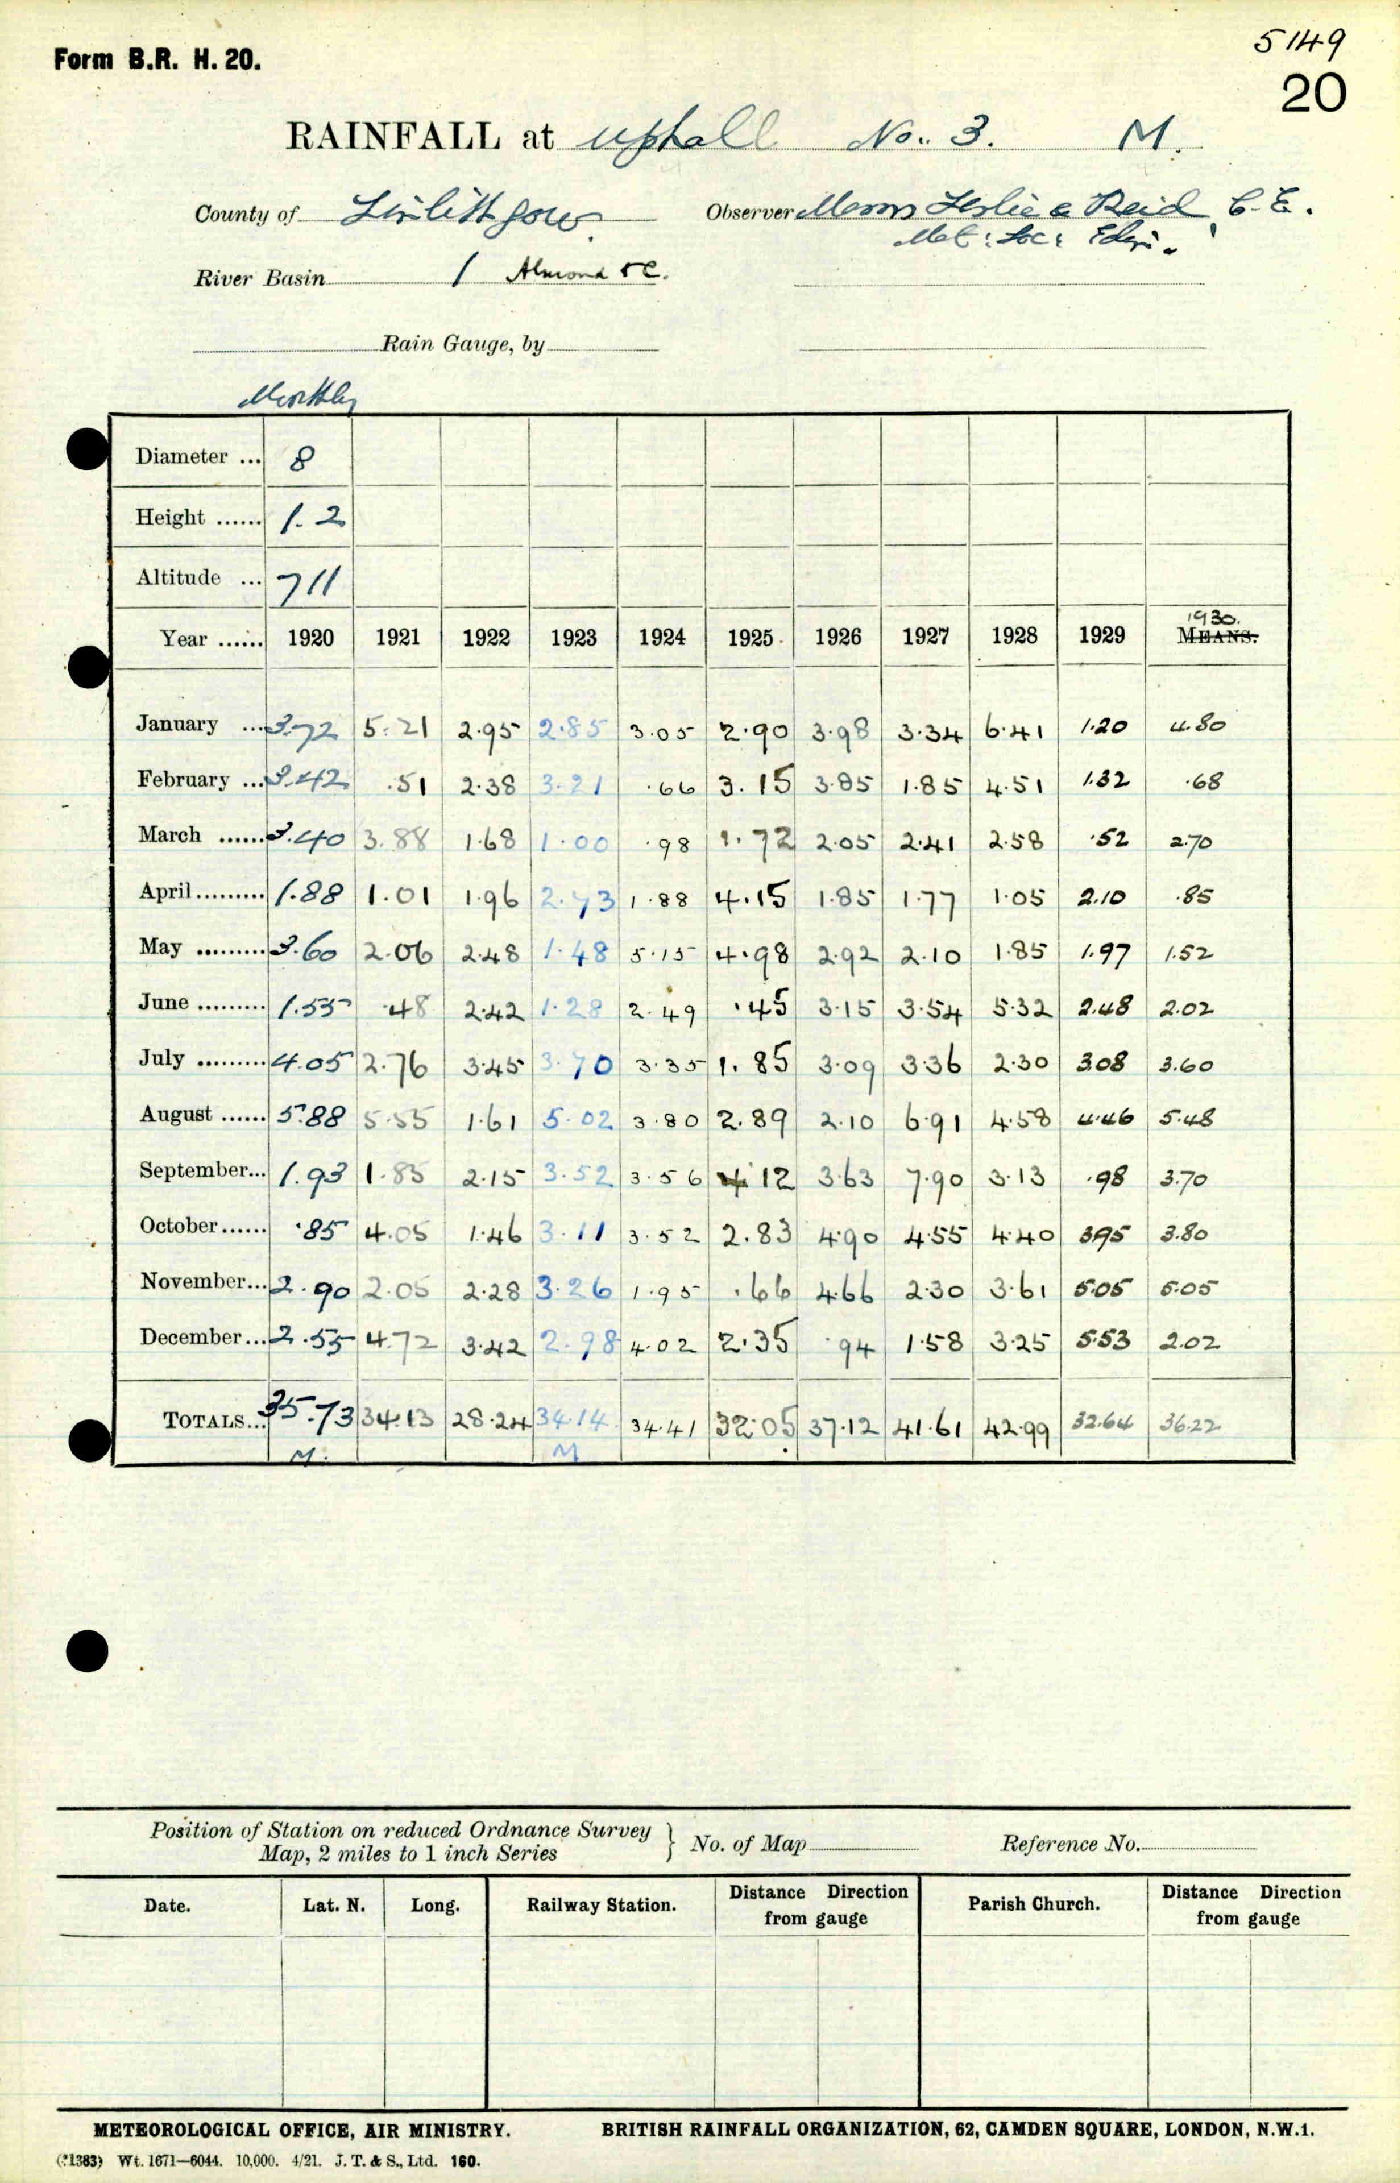 5149
Form B.R. H. 20.
20
RAINFALL at Uphall No. 3. M.
County of Linlithgow. Observer Messrs Leslie & Reid, C.E.
Met: Soc: Edin.
River Basin 1 Almond &c.
Rain Gauge, by
Monthly
Diameter ... 8
Height ...... 1.2
Altitude ... 711
1930.
Year ...... 1920 1921 1922 1923 1924 1925 1926 1927 1928 1929 MEANS.
January ... 3.72 5.21 2.95 2.85 3.05 2.90 3.98 3.34 6.41 1.20 4.80
February ... 3.42 .51 2.38 3.21 .66 3.15 3.85 1.85 4.51 1.32 .68
March ...... 3.40 3.88 1.68 1.00 .98 1.72 2.05 2.41 2.58 .52 2.70
April ......... 1.88 1.01 1.96 2.73 1.88 4.15 1.85 1.77 1.05 2.10 .85
May ......... 3.60 2.06 2.48 1.48 5.15 4.98 2.92 2.10 1.85 1.97 1.52
June ......... 1.55 .48 2.42 1.28 2.49 .45 3.15 3.54 5.32 2.48 2.02
July ......... 4.05 2.76 3.45 3.70 3.35 1.85 3.09 3.36 2.30 3.08 3.60
August ...... 5.88 5.55 1.61 5.02 3.80 2.89 2.10 6.91 4.58 4.46 5.48
September... 1.93 1.85 2.15 3.52 3.56 4.12 3.63 7.90 3.13 .98 3.70
October...... .85 4.05 1.46 3.11 3.52 2.83 4.90 4.55 4.40 3.95 3.80
November... 2.90 2.05 2.28 3.26 1.95 .66 4.66 2.30 3.61 5.05 5.05
December... 2.55 4.72 3.42 2.98 4.02 2.35 .94 1.58 3.25 5.53 2.02
TOTALS... 35.73 34.13 28.24 34.14 34.41 32.05 37.12 41.61 42.99 32.64 36.22
M. M
Position of Station on reduced Ordnance Survey
Map, 2 miles to 1 inch Series } No. of Map Reference No.
Date. Lat. N. Long. Railway Station. Distance from gauge Direction Parish Church. Distance from gauge Direction
METEOROLOGICAL OFFICE, AIR MINISTRY. BRITISH RAINFALL ORGANIZATION, 62, CAMDEN SQUARE, LONDON, N.W.1.
(*1383) Wt. 1671—6044. 10,000. 4/21. J. T. & S., Ltd. 160.